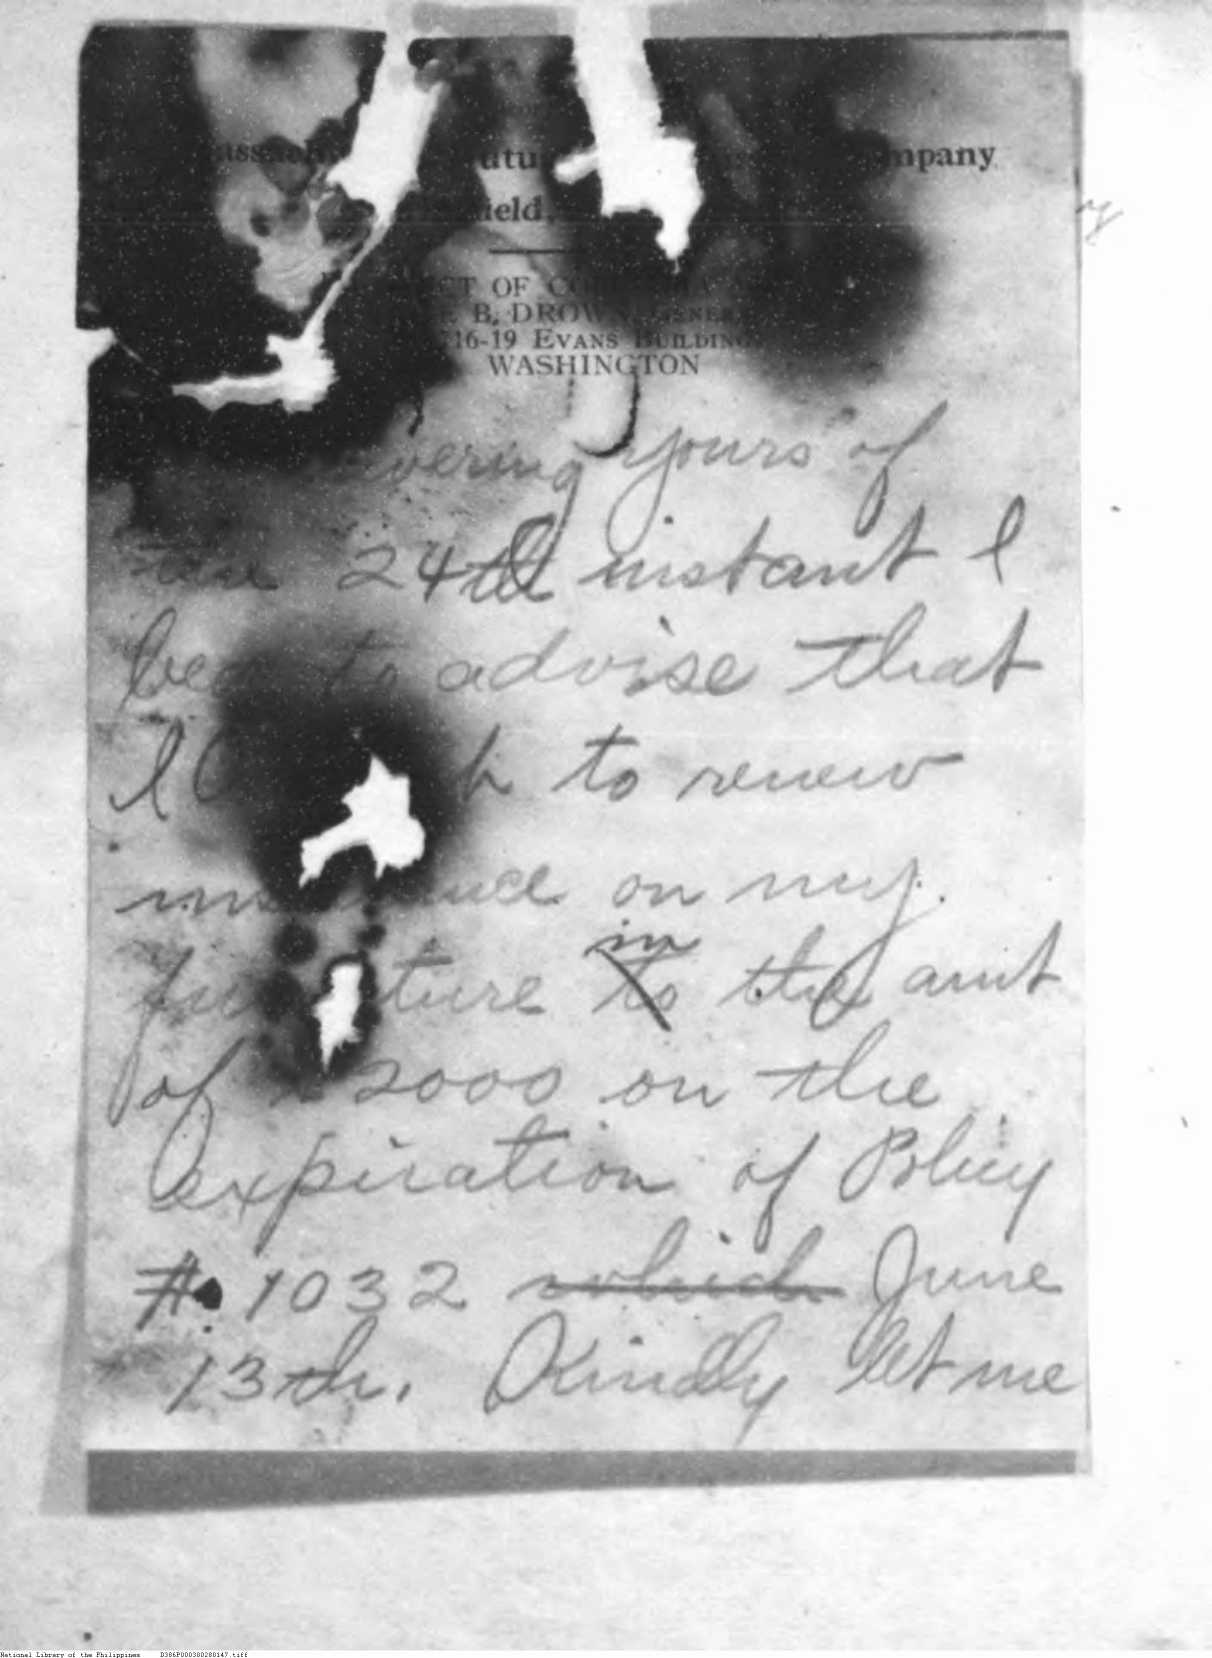 mpany
ield,
CT OF CO
B. DROWN, GENER
716-19 EVANS BUILDING
WASHINGTON
yours of
the 24th instant I
to advise that
I to renew
on my
in
to the amt
of 2000 on the
expiration of Policy
# 1032 which June
13th. Kindly let me
National Library of the Philippines D386P000300280147.tiff